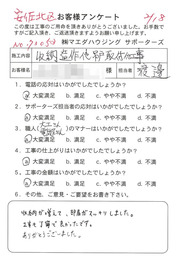 安佐北区 お客様アンケート 2/18
この度は工事のご用命を頂きありがとうございました。お手数で
すがご記入頂き、ご返送頂きますようお願い申し上げます。
㈱マエダハウジング サポーターズ
施工内容
お名前
様 担当者 渡邊
1. 電話の応対はいかがでしたでしょうか?
a. 大変満足 b. 満足 c. やや不満 d. 不満
2. サポーターズ担当者の応対はいかがでしたでしょうか?
a. 大変満足 b. 満足 c. やや不満 d. 不満
3. 職人( )のマナーはいかがでしたでしょうか?
a. 大変満足 b. 満足 c. やや不満 d. 不満
4. 工事の仕上がりはいかがでしたでしょうか?
a. 大変満足 b. 満足 c. やや不満 d. 不満
5. 工事の金額はいかがでしたでしょうか?
a. 大変満足 b. 満足 c. やや不満 d. 不満
6. その他、ご意見・ご要望をお聞かせ下さい。
収納が増えて、部屋がスッキリしました。
工事も丁寧で良かったです。
ありがとうございました。